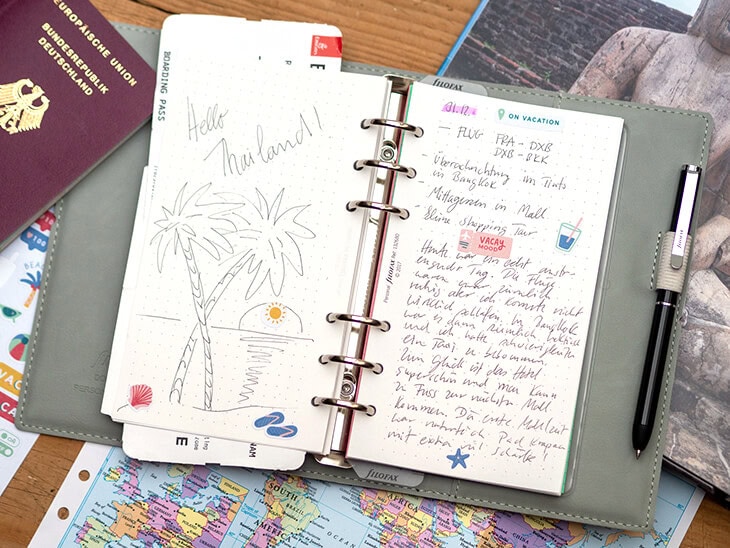 EUROPÄISCHE UNION
BUNDESREPUBLIK
DEUTSCHLAND
BOARDING PASS
Emirates
E
Hello
Thailand!
E
FILOFAX
31.12.
ON VACATION
- FLUG FRA - DXB
DXB - BKK
- Übernachtung im
in Bangkok
- Mittagessen in Mall
- kleine Shopping Tour
VACAY
MOOD
Heute war ein echt anstr-
engender Tag. Die Flüge
waren zwar ziemlich
ruhig aber ich konnte nicht
wirklich schlafen. In Bangkok
war es dann ziemlich hektisch
und ich hatte Schwierigkeiten
ein Taxi zu bekommen.
Zum Glück ist das Hotel
superschön und man kann
zu Fuss zur nächsten Mall
kommen. Die erste Mahlzeit
war natürlich Pad
mit extra viel Schärfe!
Personal FILOFAX Ref 132680
© 2017
FILOFAX
FILOFAX
SOUTH
AMERICA
AFRICA